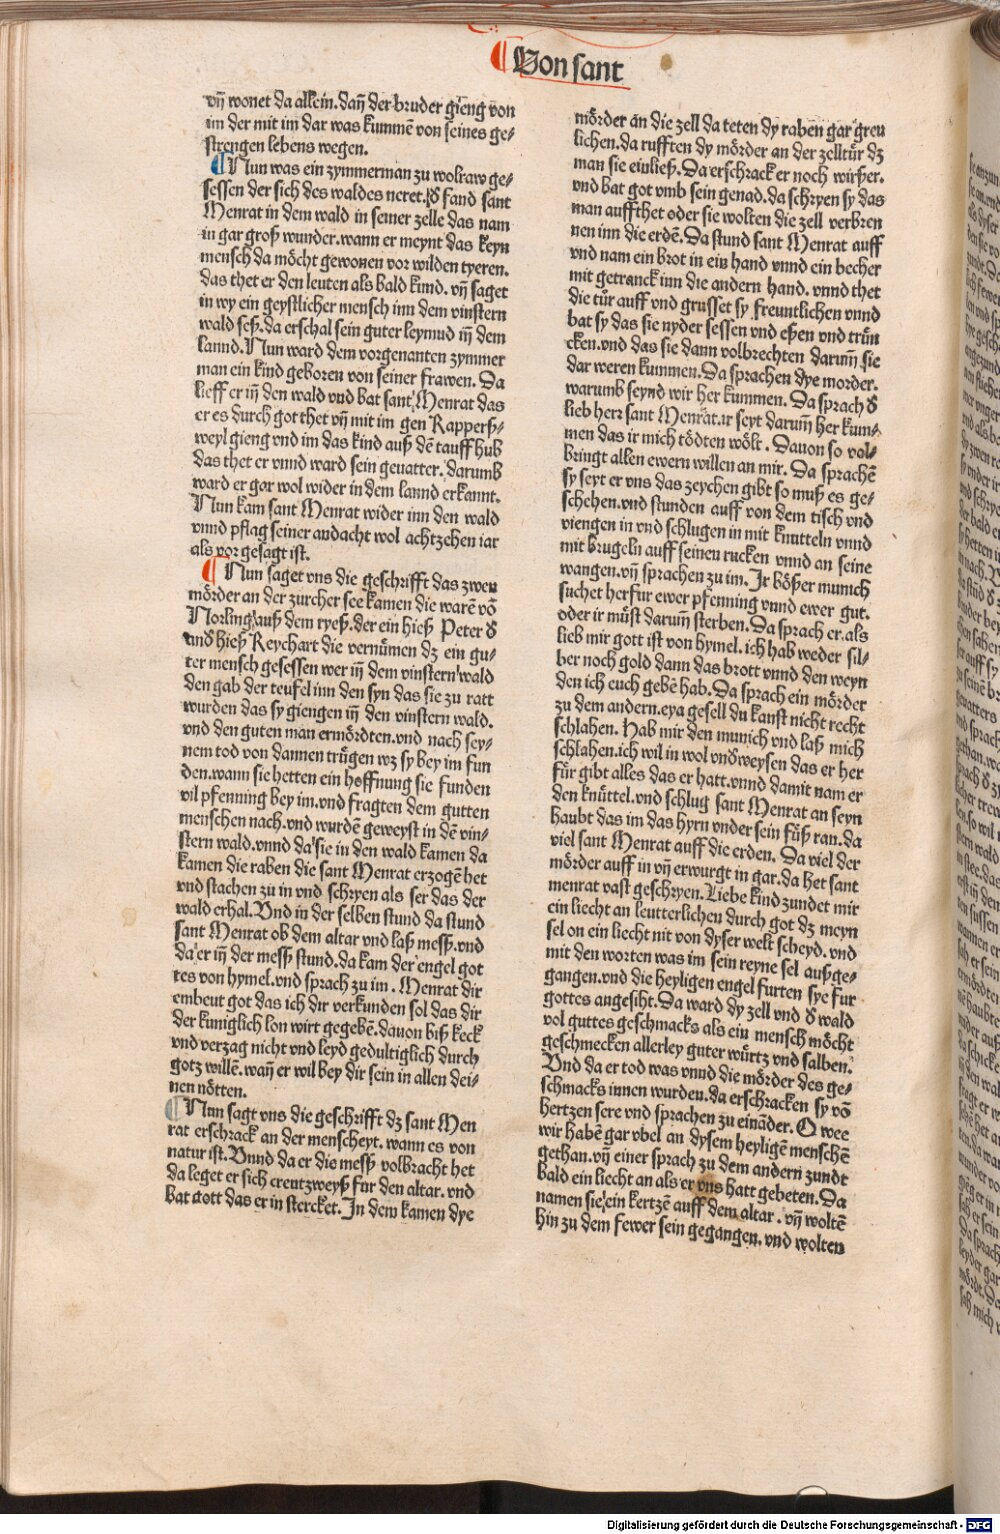 ¶ Von sant
vñ wonet da allein. dañ der bruder gieng von
im der mit im dar was kummē von seines ge⸗
strengen lebens wegen.
¶ Nun was ein zymmerman zu wolraw ge⸗
sessen der sich des waldes neret. d̕ fand sant
Menrat in dem wald in seiner zelle das nam
in gar groß wunder. wann er meynt das keyn
mensch da möcht gewonen vor wilden tyeren.
das thet er den leuten als bald kund. vñ saget
in wy ein geystlicher mensch inn dem vinstern
wald seß. da erschal sein guter leymud iñ dem
lannd. Nun ward dem vorgenanten zymmer
man ein kind geboren von seiner frawen. Da
lieff er iñ den wald vnd bat sant Menrat das
er es durch got thet vñ mit im gen Rapperß⸗
weyl gieng vnd im das kind auß dē tauff hub
das thet er vnnd ward sein geuatter. darumb
ward er gar wol wider in dem lannd erkannt.
Nun kam sant Menrat wider inn den wald
vnnd pflag seiner andacht wol achtzehen iar
als vor gesagt ist.
¶ Nun saget vns die geschrifft das zwen
mörder an der zurcher see kamen die warē vō
Norling auß dem ryeß. der ein hieß Peter d̕
and̕ hieß Reychart die vernũmen dz ein gu⸗
ter mensch gesessen wer iñ dem vinstern wald
den gab der teufel inn den syn das sie zu ratt
wurden das sy giengen iñ den vinstern wald.
vnd den guten man ermördten. vnd nach sey⸗
nem tod von dannen trügen wz sy bey im fun
den. wann sie hetten ein hoffnung sie funden
vil pfenning bey im. vnd fragten dem gutten
menschen nach. vnd wurdē geweyst in dē vin⸗
stern wald. vnnd da sie in den wald kamen da
kamen die raben die sant Menrat erzogē het
vnd stachen zu in vnd schryen als ser das der
wald erhal. Vnd in der selben stund da stund
sant Menrat ob dem altar vnd laß meß. vnd
da er iñ der meß stund. da kam der engel got
tes von hymel. vnd sprach zu im. Menrat dir
embeut got das ich dir verkunden sol das dir
der kuniglich lon wirt gegebē. dauon biß keck
vnd verzag nicht vnd leyd gedultiglich durch
gotz willē. wañ er wil bey dir sein in allen dei⸗
nen nötten.
¶ Nun sagt vns die geschrifft dz sant Men
rat erschrack an der menscheyt. wann es von
natur ist. Vnnd da er die meß volbracht het
da leget er sich creutzweyß für den altar. vnd
bat gott das er in stercket. In dem kamen dye
mörder an die zell da teten dy raben gar greu
lichen. da rufften dy mörder an der zelltür dz
man sie einließ. Da erschrack er noch wirßer.
vnd bat got vmb sein genad. da schryen sy das
man auffthet oder sie wolten die zell verbren
nen inn die erdē. Da stund sant Menrat auff
vnd nam ein brot in ein hand vnnd ein becher
mit getranck inn die andern hand. vnnd thet
die tür auff vnd grusset sy freuntlichen vnnd
bat sy das sie nyder sessen vnd eßen vnd trün
cken. vnd das sie dann volbrechten darum̃ sie
dar weren kummen. Da sprachen dye morder.
warumb seynd wir her kummen. Da sprach d̕
lieb herr sant Menrat. ir seyt darum̃ her kum⸗
men das ir mich tödten wölt. Dauon so vol⸗
bringt allen ewern willen an mir. Da sprachē
sy seyt er vns das zeychen gibt so muß es ge⸗
schehen. vnd stunden auff von dem tisch vnd
viengen in vnd schlugen in mit knutteln vnnd
mit brugeln auff seinen rucken vnnd an seine
wangen. vñ sprachen zu im. Ir bößer munich
suchet herfur ewer pfenning vnnd ewer gut.
oder ir müst darum̃ sterben. Da sprach er. als
lieb mir gott ist von hymel. ich hab weder sil⸗
ber noch gold dann das brott vnnd den weyn
den ich euch gebē hab. Da sprach ein mörder
zu dem andern. eya gesell du kanst nicht recht
schlahen. Hab mir den munich vnd laß mich
schlahen. ich wil in wol vnd̕weysen das er her
für gibt alles das er hatt. vnnd damit nam er
den knüttel. vnd schlug sant Menrat an seyn
haubt das im das hyrn vnder sein füß ran. da
viel sant Menrat auff die erden. Da viel der
mörder auff in vñ erwurgt in gar. da het sant
menrat vast geschryen. Liebe kind zundet mir
ein liecht an leutterlichen durch got dz meyn
sel on ein liecht nit von dyser welt scheyd. vnd
mit den worten was im sein reyne sel außge⸗
gangen. vnd die heyligen engel furten sye fur
gottes angesiht. Da ward dy zell vnd d̕ wald
vol guttes geschmacks als ein mensch möcht
geschmecken allerley guter würtz vnd salben.
Vnd da er tod was vnnd die mörder des ge⸗
schmacks innen wurden. da erschracken sy vō
hertzen sere vnd sprachen zu einãder. O wee
wir habē gar vbel an dysem heyligē menschē
gethan. vñ einer sprach zu dem andern zundt
bald ein liecht an als er vns hatt gebeten. Da
namen sie ein kertzē auff dem altar. vñ woltē
hin zu dem fewer sein gegangen. vnd wolten
Digitalisierung gefördert durch die Deutsche Forschungsgemeinschaft - DFG